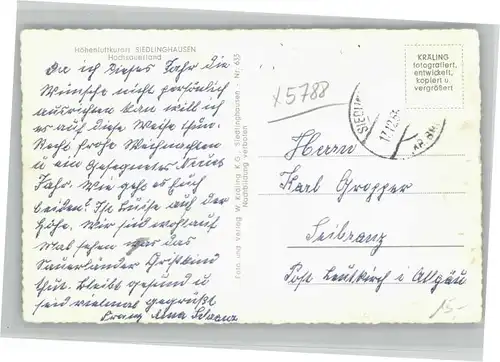 Höhenluftkurort SIEDLINGHAUSEN
Hochsauerland
Da ich dieses Jahr die
Wünsche nicht persönlich
ausrichten kan will ich
es auf diese Weise thun.
Recht frohe Weihnachten
u ein Gesegnetes Neues
Jahr. Wie geht es Euch
beiden? Ist Luise auf der
Höhe. Wir sind wohlauf
Mal sehen was das
Sauerländer Christkind
thut. Bleibt gesund u
seid vielmal gegrüßt
Foto und Verlag W. Kräling K.G., Siedlinghausen · Nr. 635
Nachbildung verboten
x5788
KRÄLING
fotografiert,
entwickelt,
kopiert u.
vergrößert
SIEDLI
17.12.
Herrn
Karl Gropper
Seibranz
Post Leutkirch i Allgäu
15.-